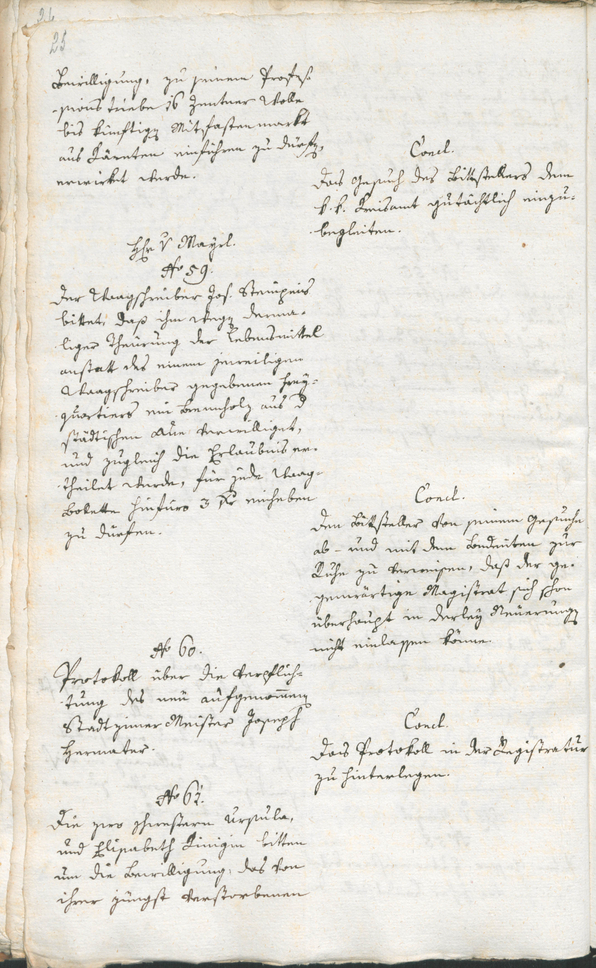 26
25
Bewilligung, zu seinem Profes¬
sions triebe 16 Zentner Wolle
bis künftigen Mitfastenmarkt
aus Kärnten einführen zu dürfen,
erwirket werde.
Concl.
Das Gesuch des Bittstellers dem
k. k. Kreisamt gutächtlich einzu¬
begleiten.
Hr v Mayrl.
No 59.
Der Waagschreiber Jos. Stempeis
bittet, daß ihm wegen derma¬
liger Theurung der Lebensmittel
anstatt des einem jeweiligen
Waagschreiber gegebenen Frey¬
quartiers ein Brennholz aus d
städtischen Aue verwilliget,
und zugleich die Erlaubnis er¬
theilet werde, für jede Waag¬
bolette hinfüro 3 Xr einheben
zu dürfen.
Concl.
Den Bittsteller von seinem Gesuche
ab- und mit dem Bedeuten zur
Ruhe zu verweisen, daß der ge¬
genwärtige Magistrat sich schon
überhaupt in derley Neuerungen
nicht einlassen könne.
No 60.
Protokoll über die Verpflich¬
tung des neu aufgenommenen
Stadtzimmer Meister Joseph
Hermater.
Concl.
Das Protokoll in der Registratur
zu hinterlegen.
No 61.
Die zwo Schwestern Ursula,
und Elisabeth Kinigin bitten
um die Bewilligung, das von
ihrer jüngst verstorbenen